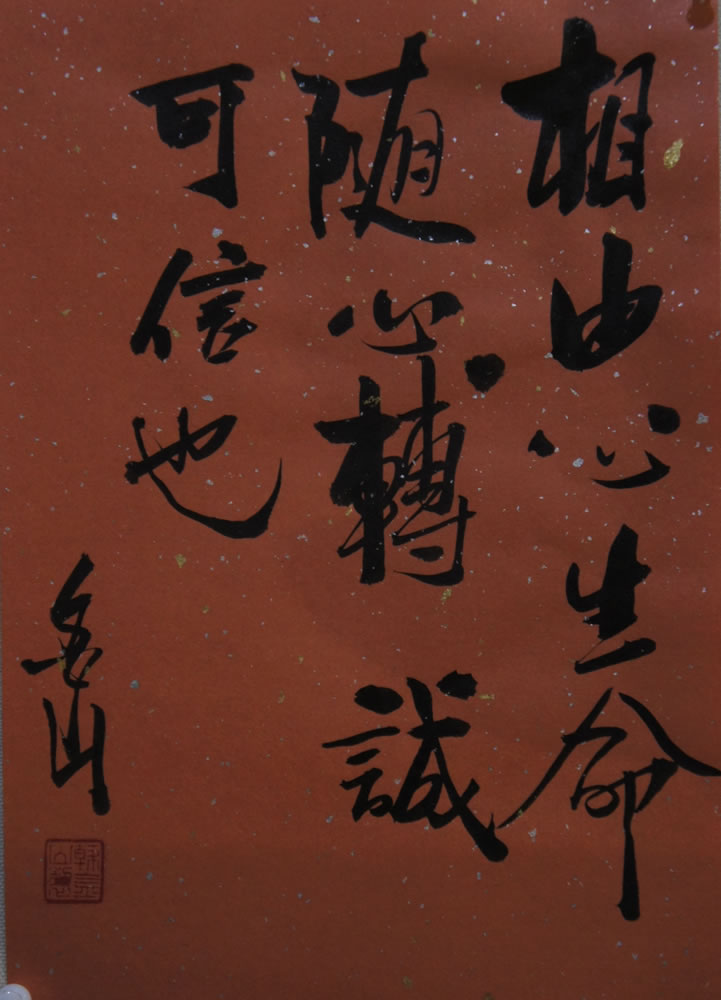 相由心生命
随心轉誠
可信也
山